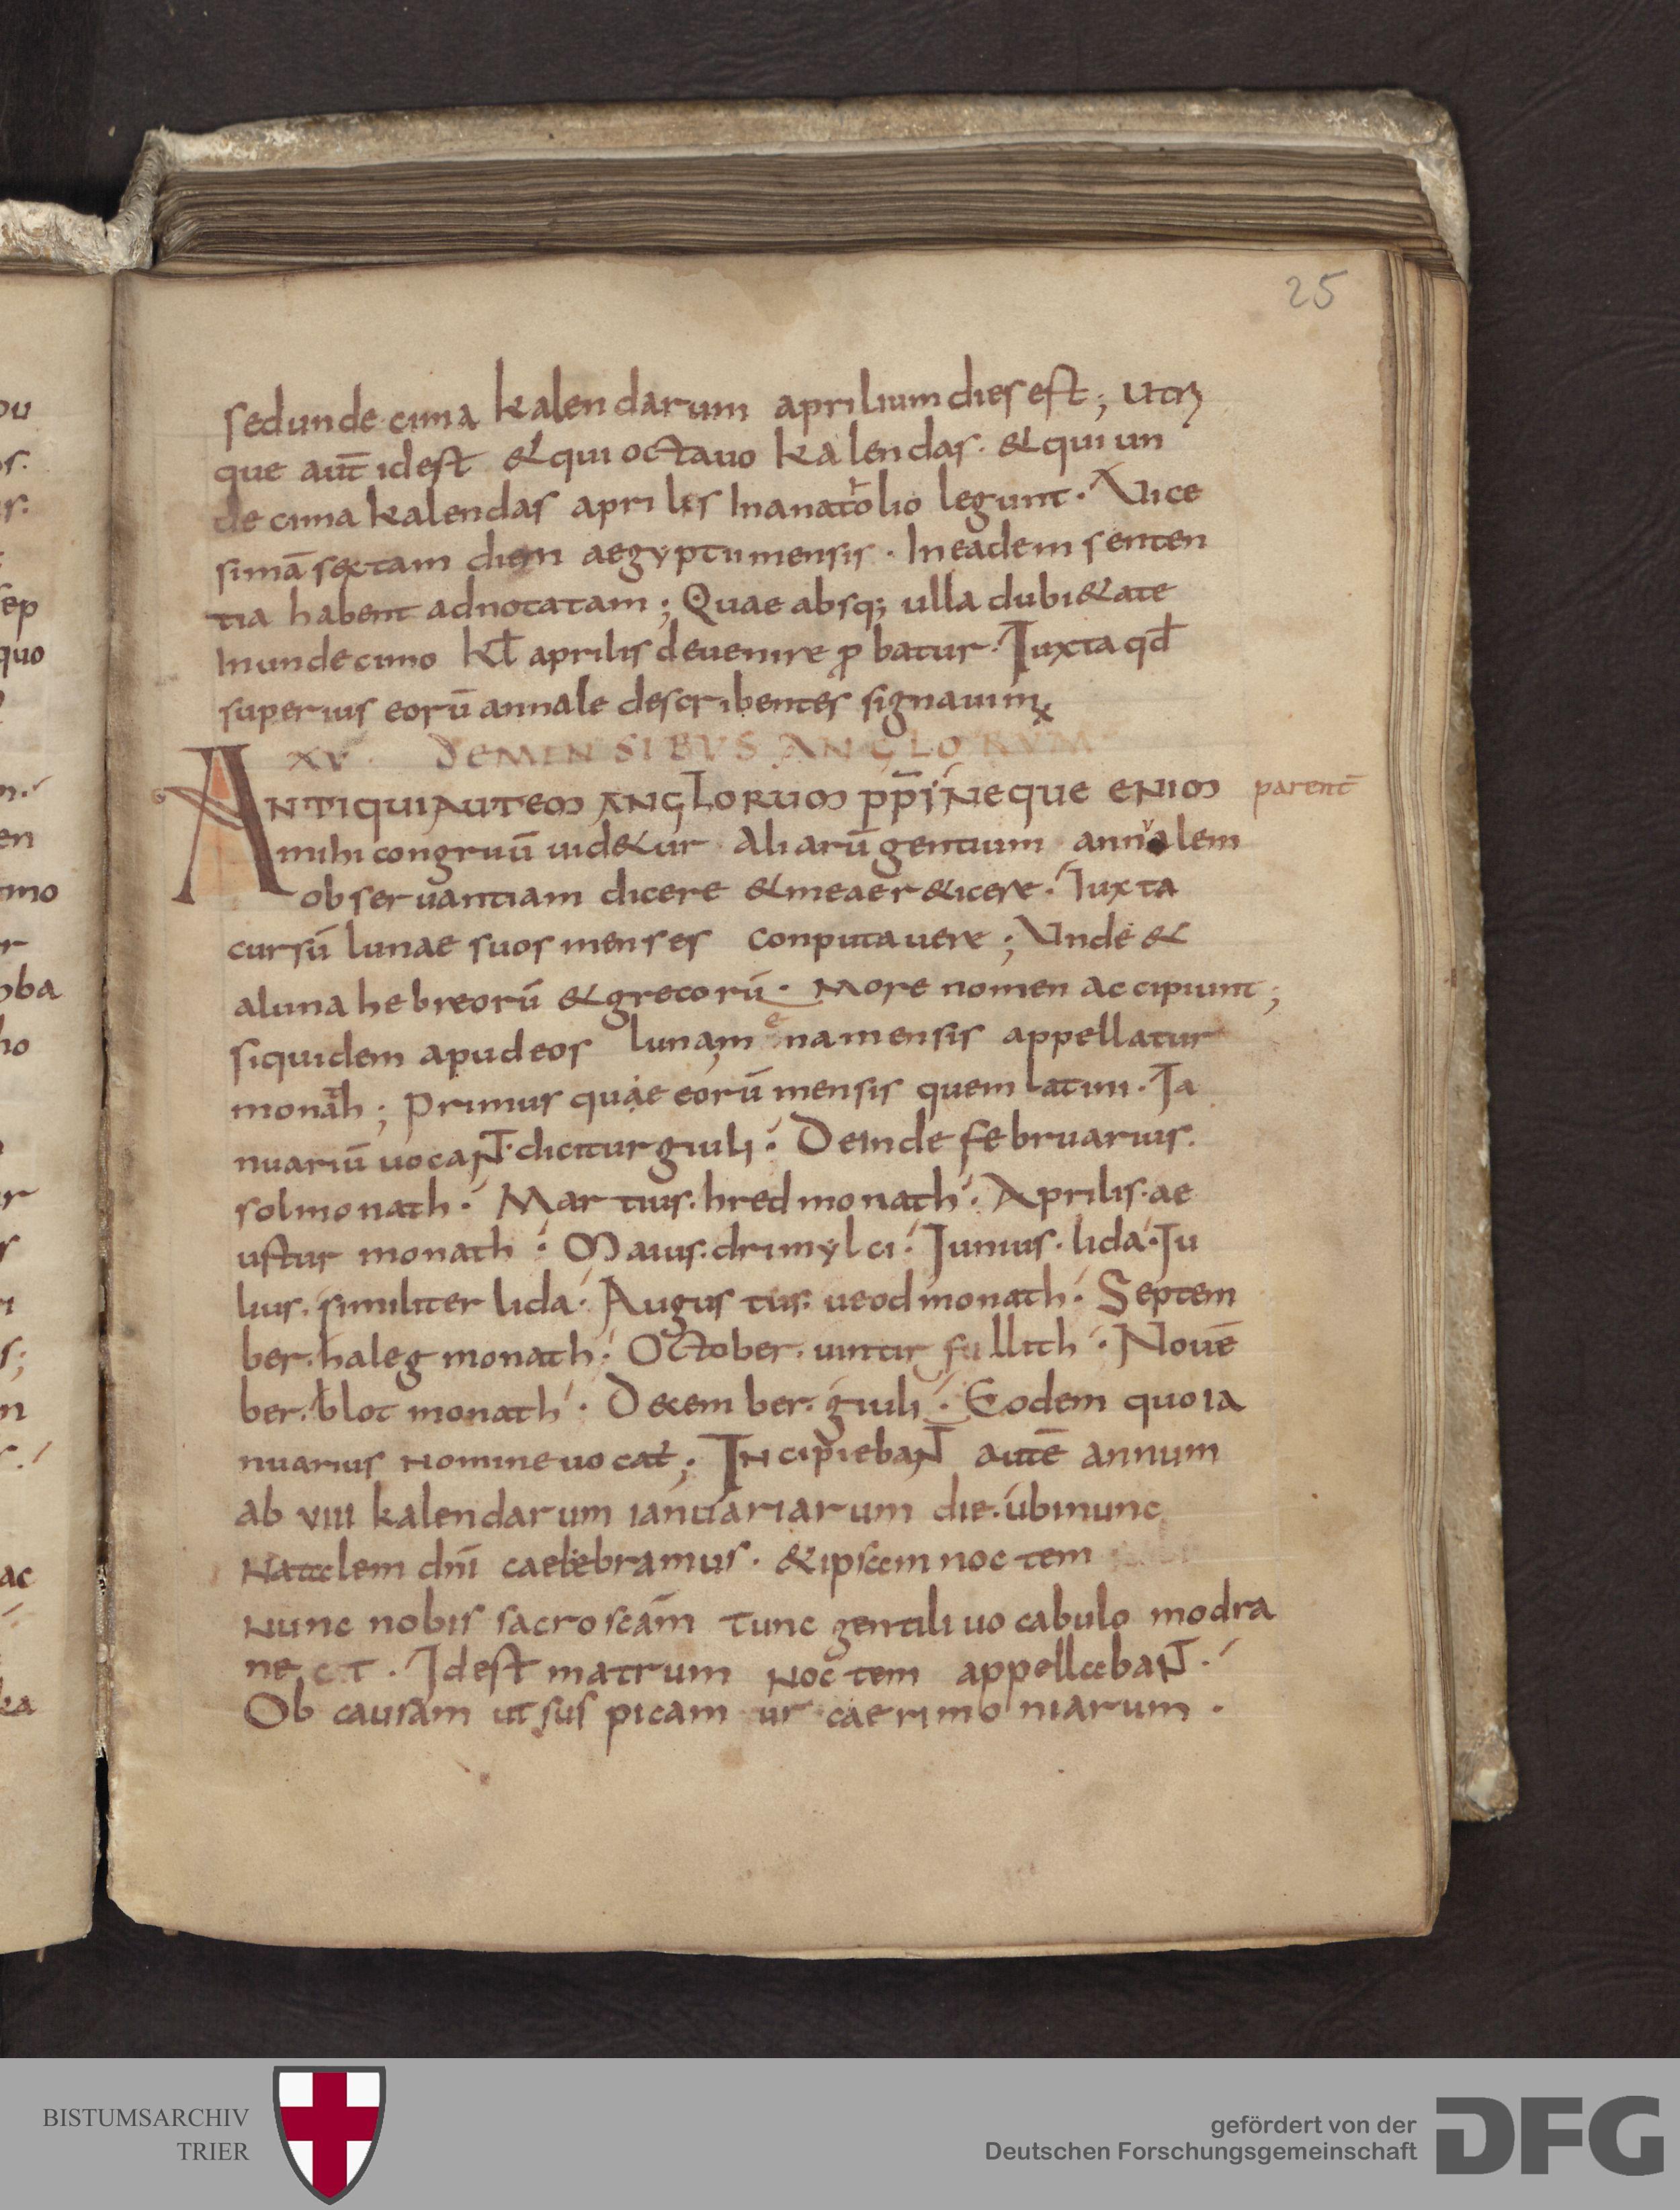 25
sed undecima kalendarum aprilium dies est; utrū
que aut̄ id est & qui octauo kalendas · & qui un
decima kalendas aprilis In anatolio legunt · Vice
simā sextam diem aegyptii mensis · In eadem senten
tia habent adnotatam; Quae absq; ulla dubi&ate
In undecimo kl̄ aprilis deuenire ꝓbatur · Iuxta qd̄
superius eorū annale describentes signauimꝰ
XV · DE MENSIBVS ANGLORVM
ANTIQUI AUTEM ANGLORUM PP̄I NEQUE ENIM parent̄
mihi congruū uid&ur aliarū gentium annualem
obseruantiam dicere & meae r&icere · Iuxta
cursū lunae suos menses conputauere; Vnde &
a luna hebreorū & grecorū · More nomen accipiunt;
siquidem apud eos luna menamensis appellatur
monath; Primus quae eorū mensis quem Latini · Ia
nuariū uocaNT · dicitur giuli · Deinde februarius ·
solmonath · Martius · hredmonath · Aprilis · ae
ustur monath · Maius · drimylci · Iunius · lida · Iu
lius · similiter lida · Augustus · ueodmonath · Septem
ber · haleg monath · October · uuntir fullith · Nouē
ber · blot monath · December · giuli · Eodem quo ia
nuarius nomine uocat̄; INcipiebaNT autē annum
ab VIII kalendarum ianuariarum die · ubi nunc
Natalem dn̄i caelebramus · & ipsam noctem
Nunc nobis sacroscām tunc gentili uocabulo modra
nect · Id est matrum noctem appellabaNT ·
Ob causam ut suspicamur caerimoniarum ·
ou
sep
quo
en
imo
oba
ho
ac
BISTUMSARCHIV
TRIER
gefördert von der
Deutschen Forschungsgemeinschaft
DFG